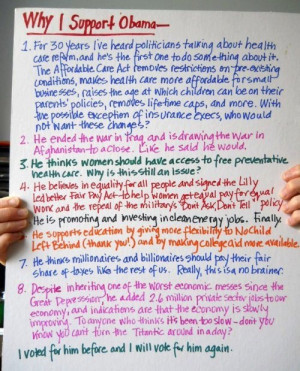 Why I Support Obama-
1. For 30 years I've heard politicians talking about health
care reform, and he's the first one to do something about it.
The Affordable Care Act removes restrictions on pre-existing
conditions, makes health care more affordable for small
businesses, raises the age at which children can be on their
parents' policies, removes lifetime caps, and more. With
the possible exception of insurance execs, who would
not want these changes?
2. He ended the war in Iraq and is drawing the war in
Afghanistan to a close. Like he said he would.
3. He thinks women should have access to free preventative
health care. Why is this still an issue?
4. He believes in equality for all people and signed the Lilly
Ledbetter Fair Pay Act - to help women get equal pay for equal
work and the repeal of the military's "Don't Ask, Don't Tell" policy.
He is promoting and investing in clean energy jobs. Finally.
He supports education by giving more flexibility to No Child
Left Behind (thank you!) and by making college aid more available.
7. He thinks millionaires and billionaires should pay their fair
share of taxes like the rest of us. Really, this is a no brainer.
8. Despite inheriting one of the worst economic messes since the
Great Depression, he added 2.6 million private sector jobs to our
economy, and indications are that the economy is slowly
improving. To anyone who thinks it's been too slow - don't you
know you can't turn the Titantic around in a day?
I voted for him before and I will vote for him again.